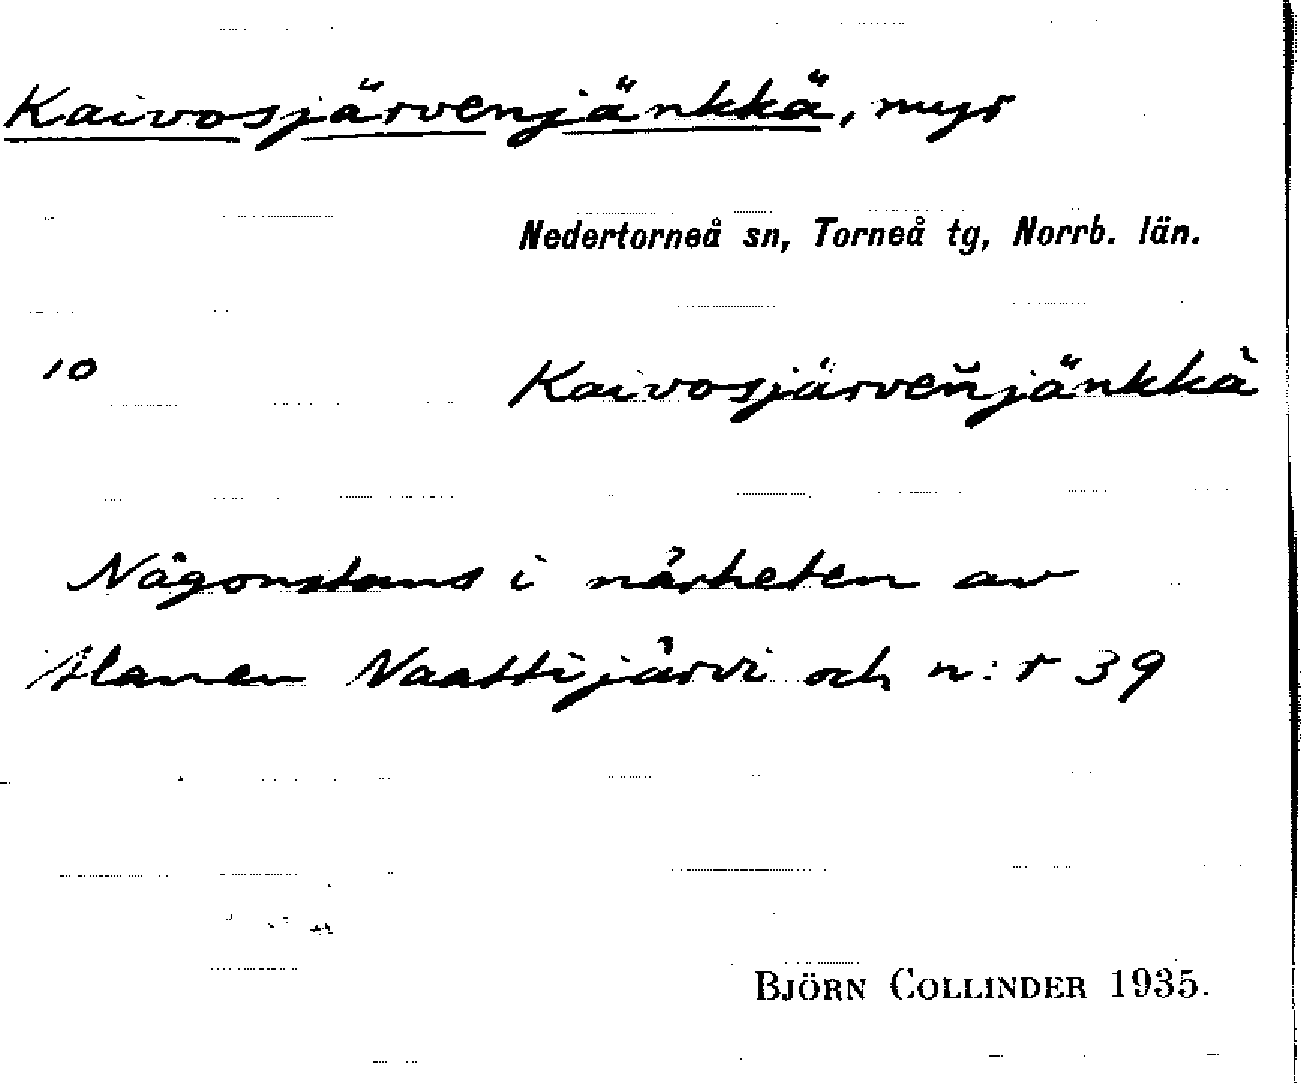 Kaivosjärvenjänkkä, myr
Nedertorneå sn, Torneå tg, Norrb. län.
10 Kaivosjärveňjänkkä
Någonstans i närheten av
Alanen Naattijärvi och n:r 39
BJÖRN COLLINDER 1935.